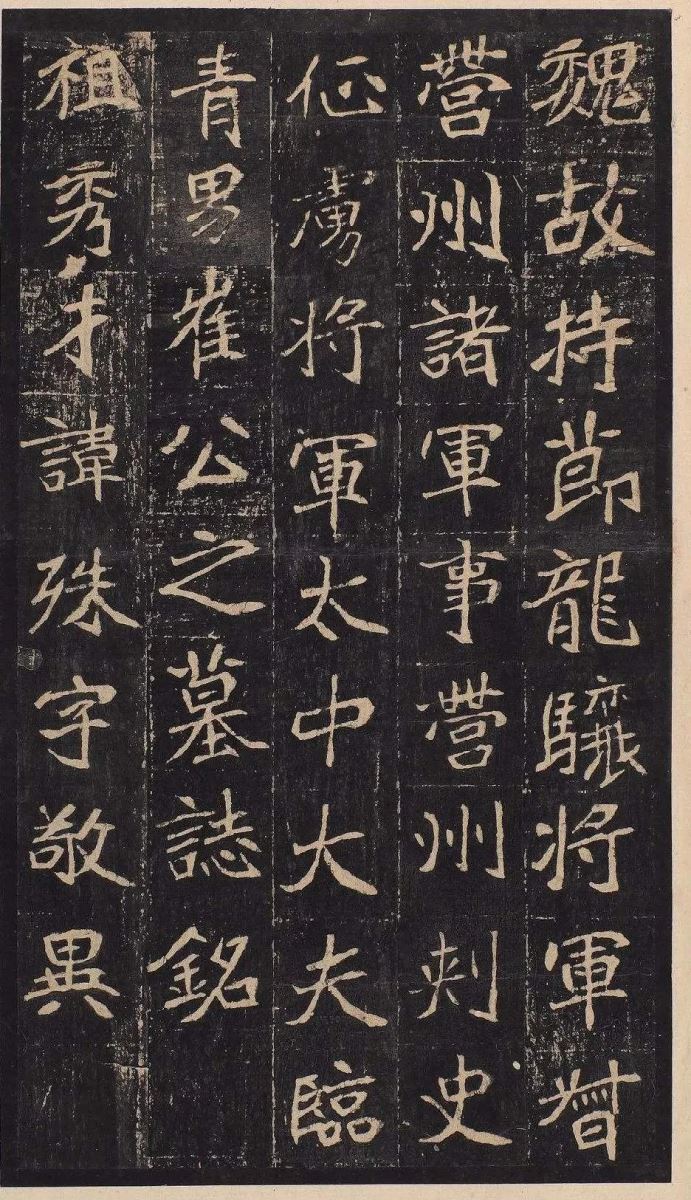 魏故持節龍驤将軍督
營州諸軍事營州刾史
征虜将軍太中大夫臨
青男崔公之墓誌銘
祖秀才諱殊字敬異